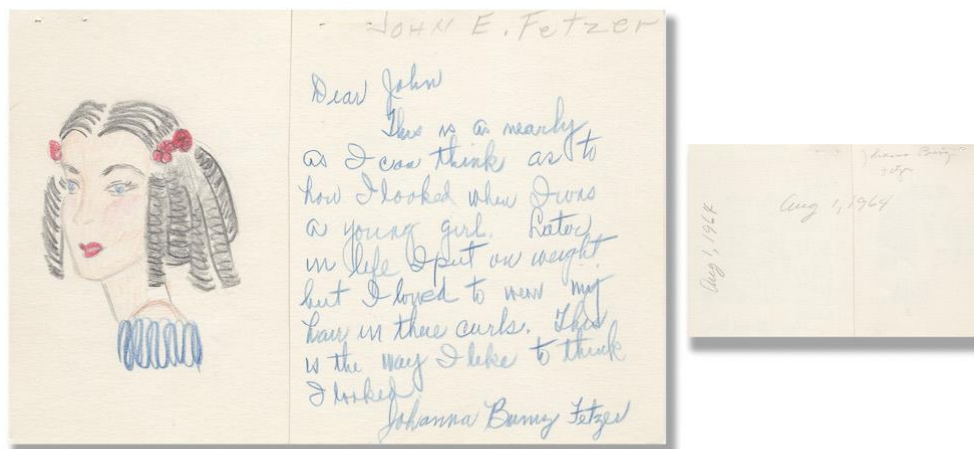 JOHN E. Fetzer
Dear John
This is as nearly
as I can think as to
how I looked when I was
a young girl. Later
in life I put on weight
but I loved to wear my
hair in these curls. This
is the way I like to think
I looked
Johanna Bumy Fetzer
Aug 1, 1964
Aug 1, 1964